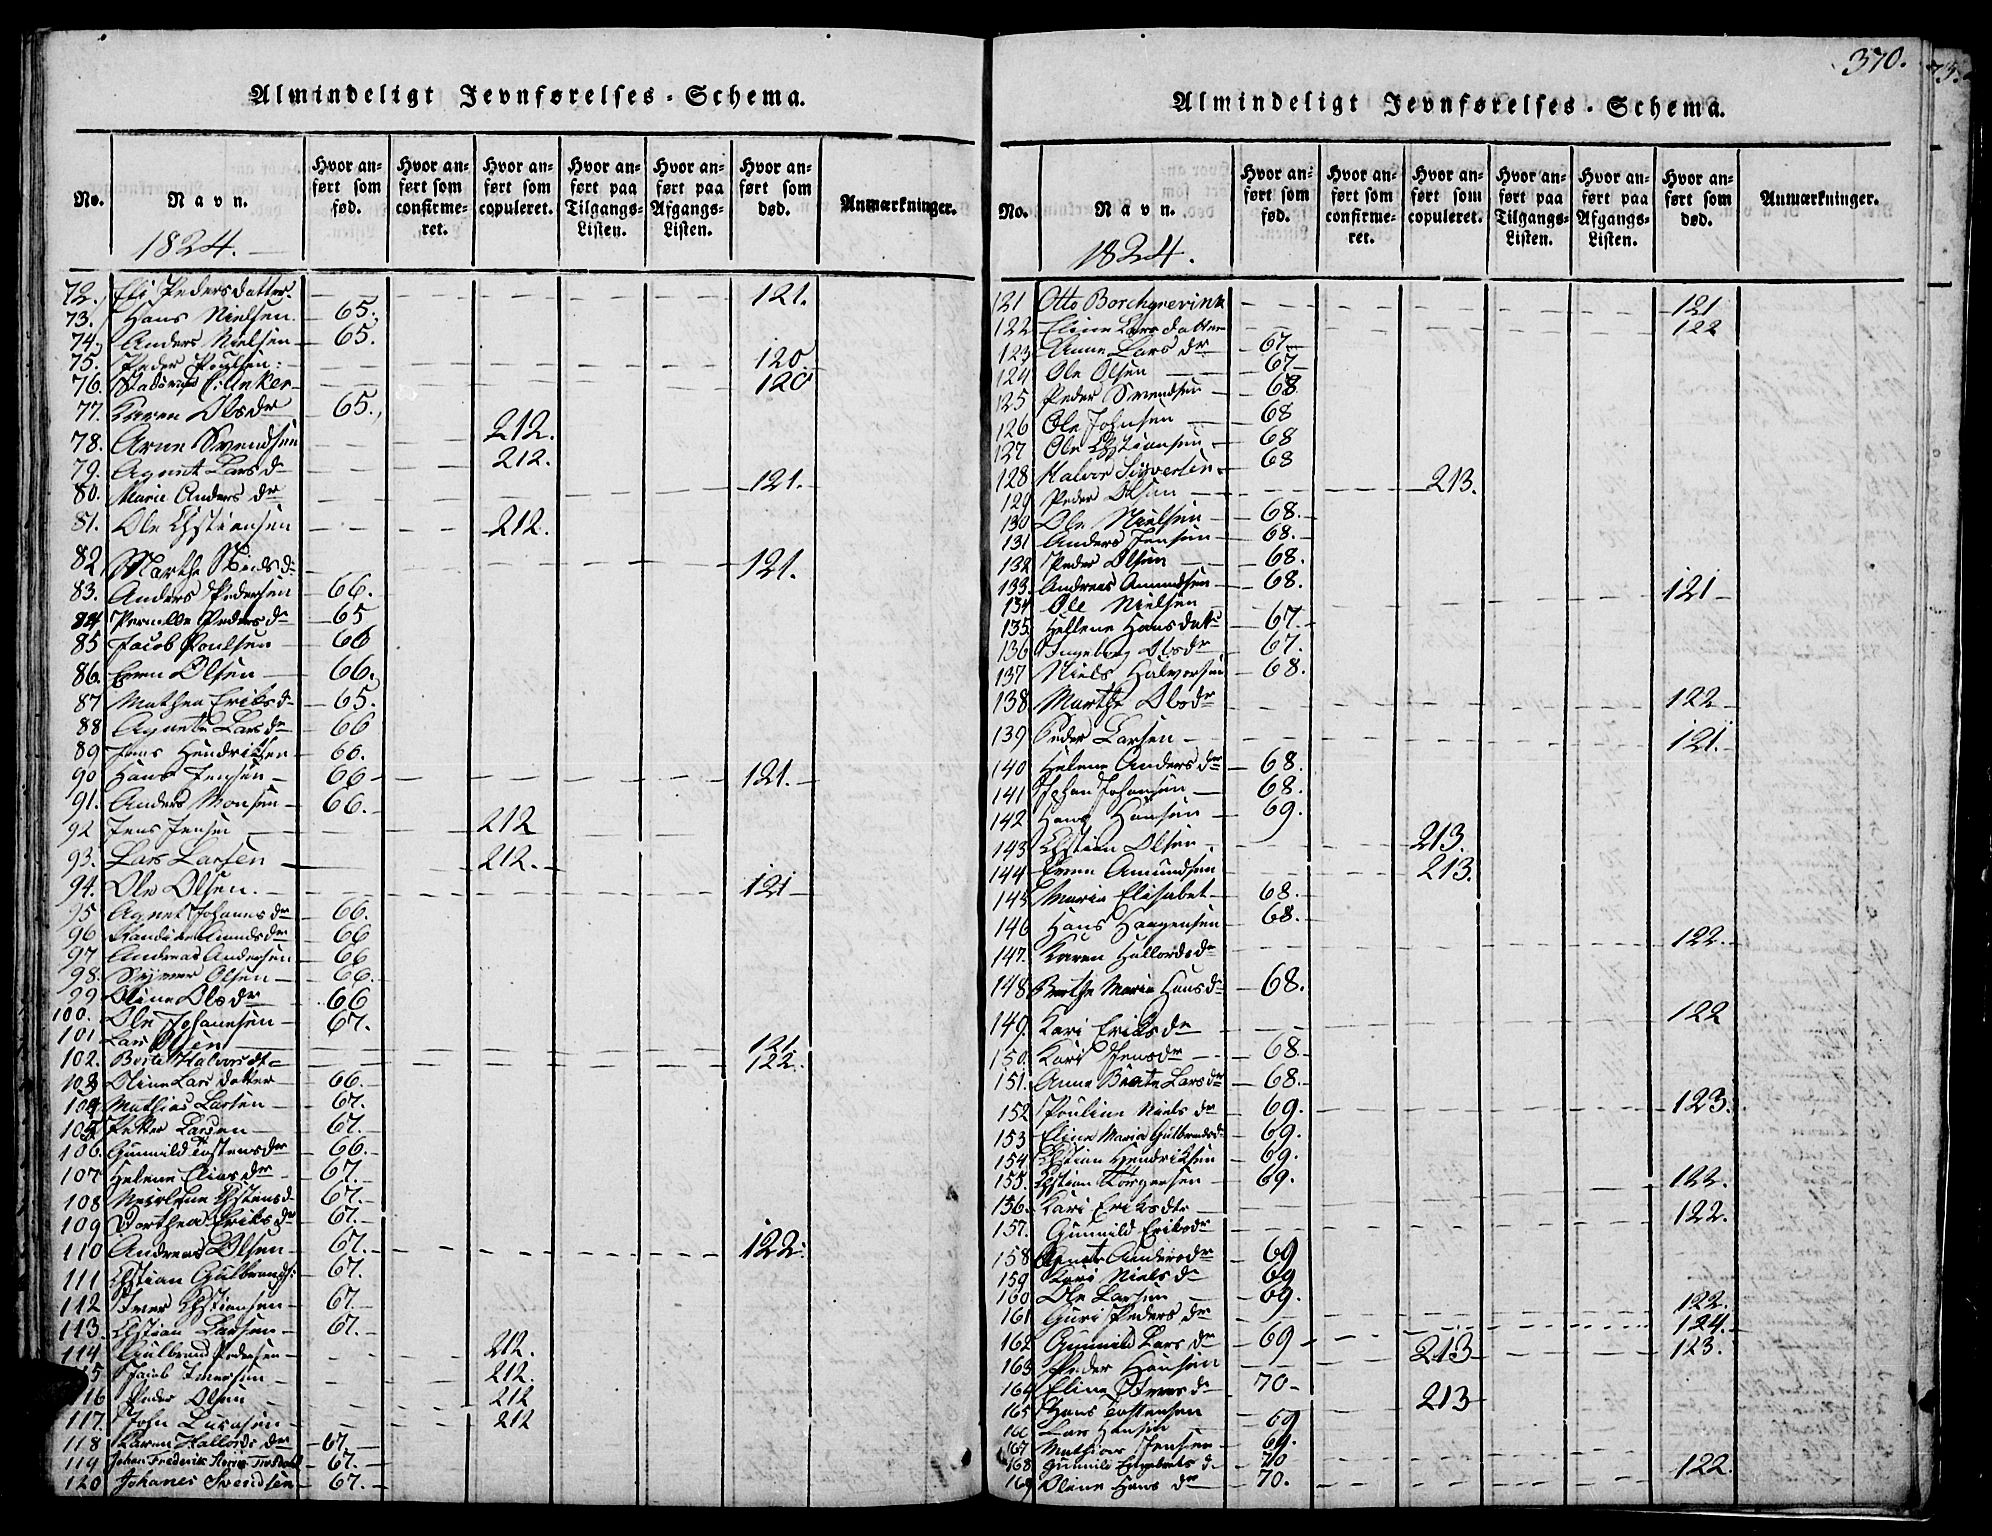 Almindeligt Jevnførelses-Schema.
No. Navn. Hvor anført som fød. Hvor anført som confirmeret. Hvor anført som copuleret. Hvor anført paa Tilgangs-Listen. Hvor anført paa Afgangs-Listen. Hvor anført som død. Anmærkninger.
1824.
72. Eli Pedersdatter. 121.
73. Hans Nielsen 65.
74. Anders Nielsen 65.
75. Peder Poulsen 120
76. Anker 120
77. Karen Olsdr 65.
78. Arne Svendsen 212.
79. Agnet Larsd 212.
80. Marie Anders dr 121.
81. Ole Chstiansen 212.
82 Marthe Nielsd 121.
83. Anders Pedersen 66.
84 Pernelle Pedersd 65
85 Jacob Poulsen 66
86. Even Olsen 66.
87 Mathea Eriksd 65.
88 Agnete Larsdr 66
89 Jens Hendriksen 66.
90 Hans Jensen 66 121.
91. Anders Monsen 66.
92 Jens Jensen 212
93. Lars Larsen 212.
94. Ole Olsen. 121
95 Agnet Johannesdr 66.
96 Amundsdr 66
97 Andreas Andersen 66
98. Olsen 66.
99 Oline Olsdr 66
100. Ole Johannesen 67.
101 Lars Olsen 121.
102. Halvorsdt 122.
103 Oline Larsdatter 66.
104 Mathias Larsen 67.
105 Petter Larsen 67.
106. Gunnild Tostensdr 66.
107 Helene Eliasdr 67.
108 Chstensd 67.
109 Dorthea Eriksdr 67.
110 Andreas Olsen 67. 122.
111 Chstian Gulbrands: 67.
112 Iver Chstiansen 67.
113. Chstian Larsen 67.
114 Gulbrand Pedersen 212.
5 Jacob Iversen 212.
116 Peder Olsen 212
117. John Larsen 212
118 Karen Hallords dr 67
119 Johan Frederik 67.
120 Johanes Svendsen 67.
370.
Almindeligt Jevnførelses-Schema.
No. Navn. Hvor anført som fød. Hvor anført som confirmeret. Hvor anført som copuleret. Hvor anført paa Tilgangs-Listen. Hvor anført paa Afgangs-Listen. Hvor anført som død. Anmærkninger.
1824.
121 Otto Borchgrevink 121
122 Eline Larsdatter 122
123 Anne Lars dr 67
124 Ole Olsen 67
125 Peder Svendsen 68
126 Ole Johnsen 68
127 Ole Chstiansen 68
128 Halvor Sivertsen 68
129 Peder Olsen 213.
130 Ole Nielsen 68.
131 Anders Jensen 68.
132 Peder Olsen 68.
133. Andreas Amundsen 68.
134 Ole Nielsen 121
135. Hellene Hansdatr 67.
136 Ingeborg Olsdr 67.
137 Niels Halvorsen 68.
138 Marthe Olsdr 122
139 Peder Larsen 121.
140 Helene Anders dr 68.
141 Johan Johansen 68.
142 Hans Hansen 69.
143 Chstian Olsen 213.
144 Even Amundsen 213.
145 Marie Elisabet 68.
146 Hans Haagensen 68.
147. Karen Hallordsdr 122.
148 Berthe Marie Hansdr 68.
149. Kari Eriksdr 122
150. Kari Jensdr 68.
151. Anne Beate Larsdr 68.
152 Pouline Niels dr 69. 123.
153 Eline Maria Gulbrandsd 69.
154 Chstian Hendriksen 69.
155. Chstian Torgersen 69. 122.
156. Kari Eriksdtr 122.
157. Gunnild Eriksdr
158 Agnete Andersdr 69
159 Kari Nielsd 69
160 Ole Larsen 69.
161 Guri Peders dr 122.
162 Gunnild Lars dr 69 124.
163 Peder Hansen 213 123.
164 Eline Iversd 70
165 Hans Tostensen 213
166 Lars Hansen 69
167 Mathias Jensen 69.
168 Gunnild Engebrets d 70
169 Oline Hans dr 70. 122.